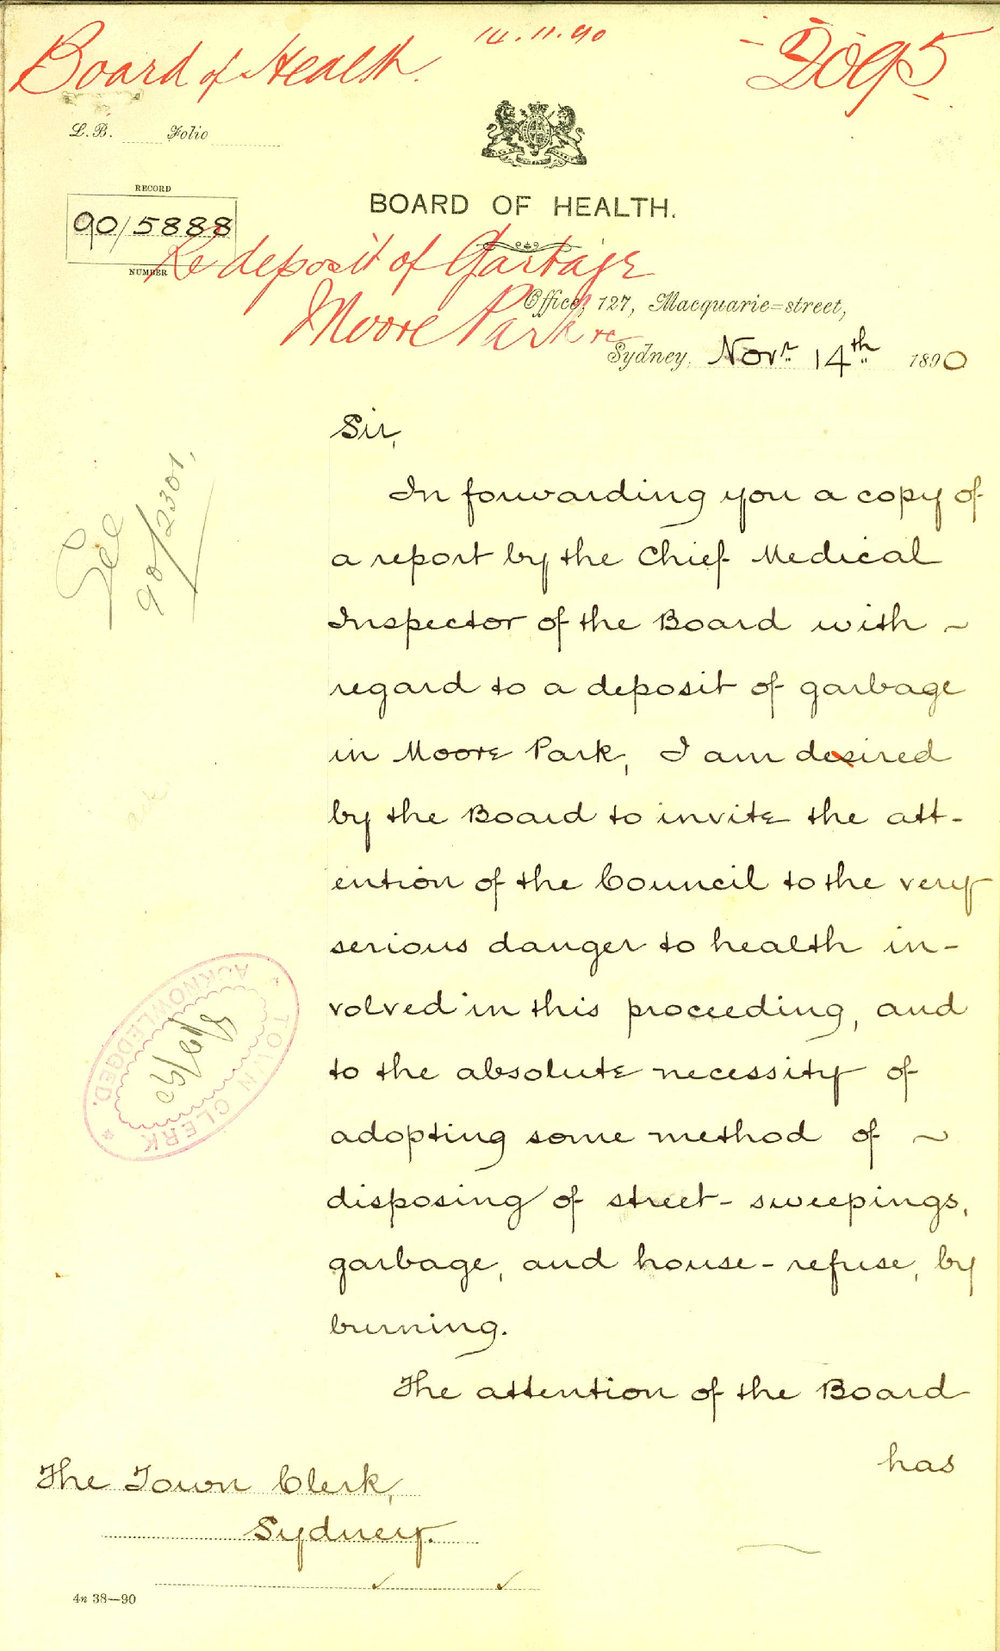 Board of Health.
14.11.90
- 2095
L.B. Folio
RECORD
90/5888
NUMBER
BOARD OF HEALTH.
Re deposit of Garbage
Moore Park re
Office, 127, Macquarie=street,
Sydney, Novr. 14th 1890
See
90/2301.
Sir,
In forwarding you a copy of
a report by the Chief Medical
Inspector of the Board with ~
regard to a deposit of garbage
in Moore Park, I am desired
by the Board to invite the att-
ention of the Council to the very
serious danger to health in-
volved in this proceeding, and
to the absolute necessity of
adopting some method of ~
disposing of street-sweepings,
garbage, and house-refuse, by
burning.
The attention of the Board
has
TOWN CLERK
ACKNOWLEDGED.
The Town Clerk,
Sydney.
4n 38—90